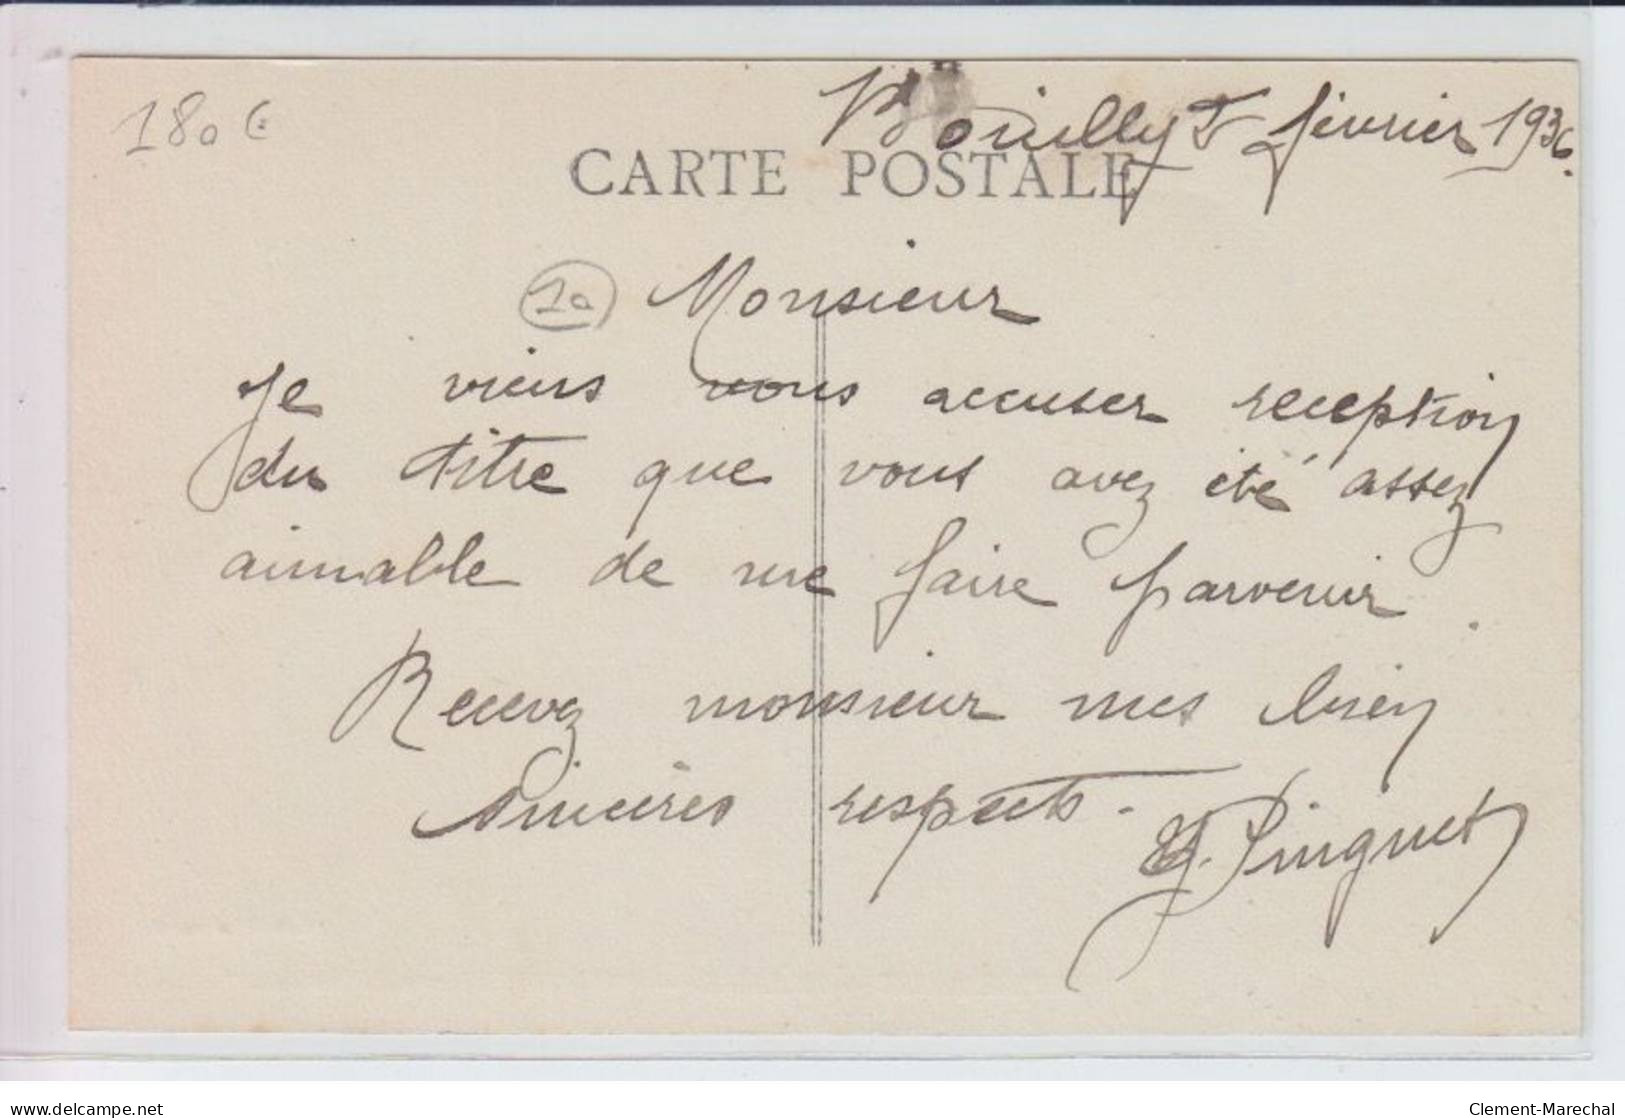 180 €
Bouilly 5 février 1936.
CARTE POSTALE
10
Monsieur
Je viens vous accuser reception
du titre que vous avez été assez
aimable de me faire parvenir.
Recevez monsieur mes bien
sincères respects.
Y. Pinguet
delcampe.net
Clement-Marechal